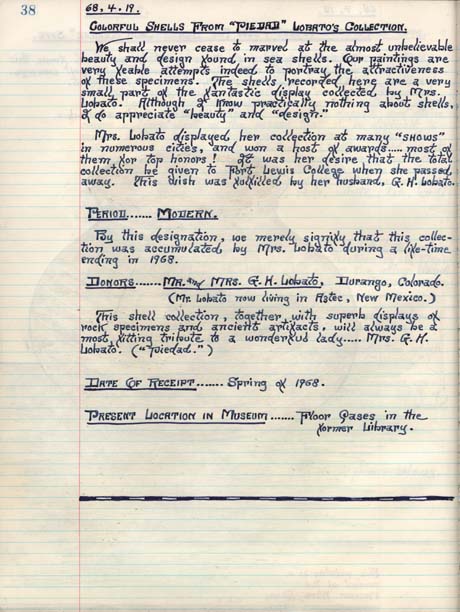 38
68, 4. 19.
COLORFUL SHELLS FROM "PIEDAD" LOBATO'S COLLECTION.
We shall never cease to marvel at the almost unbelievable
beauty and design found in sea shells. Our paintings are
very feable attempts indeed to portray the attractiveness
of these specimens. The shells recorded here are a very
small part of the fantastic display collected by Mrs.
Lobato. Although I know practically nothing about shells,
I do appreciate "beauty" and "design."
Mrs. Lobato displayed her collection at many "SHOWS"
in numerous cities, and won a host of awards..... most of
them for top honors! It was her desire that the total
collection be given to Fort Lewis College when she passed
away. This wish was fulfilled by her husband, G. H. Lobato.
PERIOD....... MODERN.
By this designation, we merely signify that this collec-
tion was accumulated by Mrs. Lobato during a life-time
ending in 1968.
DONORS....... MR. and MRS. G. H. Lobato, Durango, Colorado.
(Mr. Lobato now living in Aztec, New Mexico.)
This shell collection, together with superb displays of
rock specimens and ancient artifacts, will always be a
most fitting tribute to a wonderful lady..... Mrs. G. H.
Lobato. ("Piedad.")
DATE OF RECEIPT....... Spring of 1968.
PRESENT LOCATION IN MUSEUM....... Floor Cases in the
former Library.